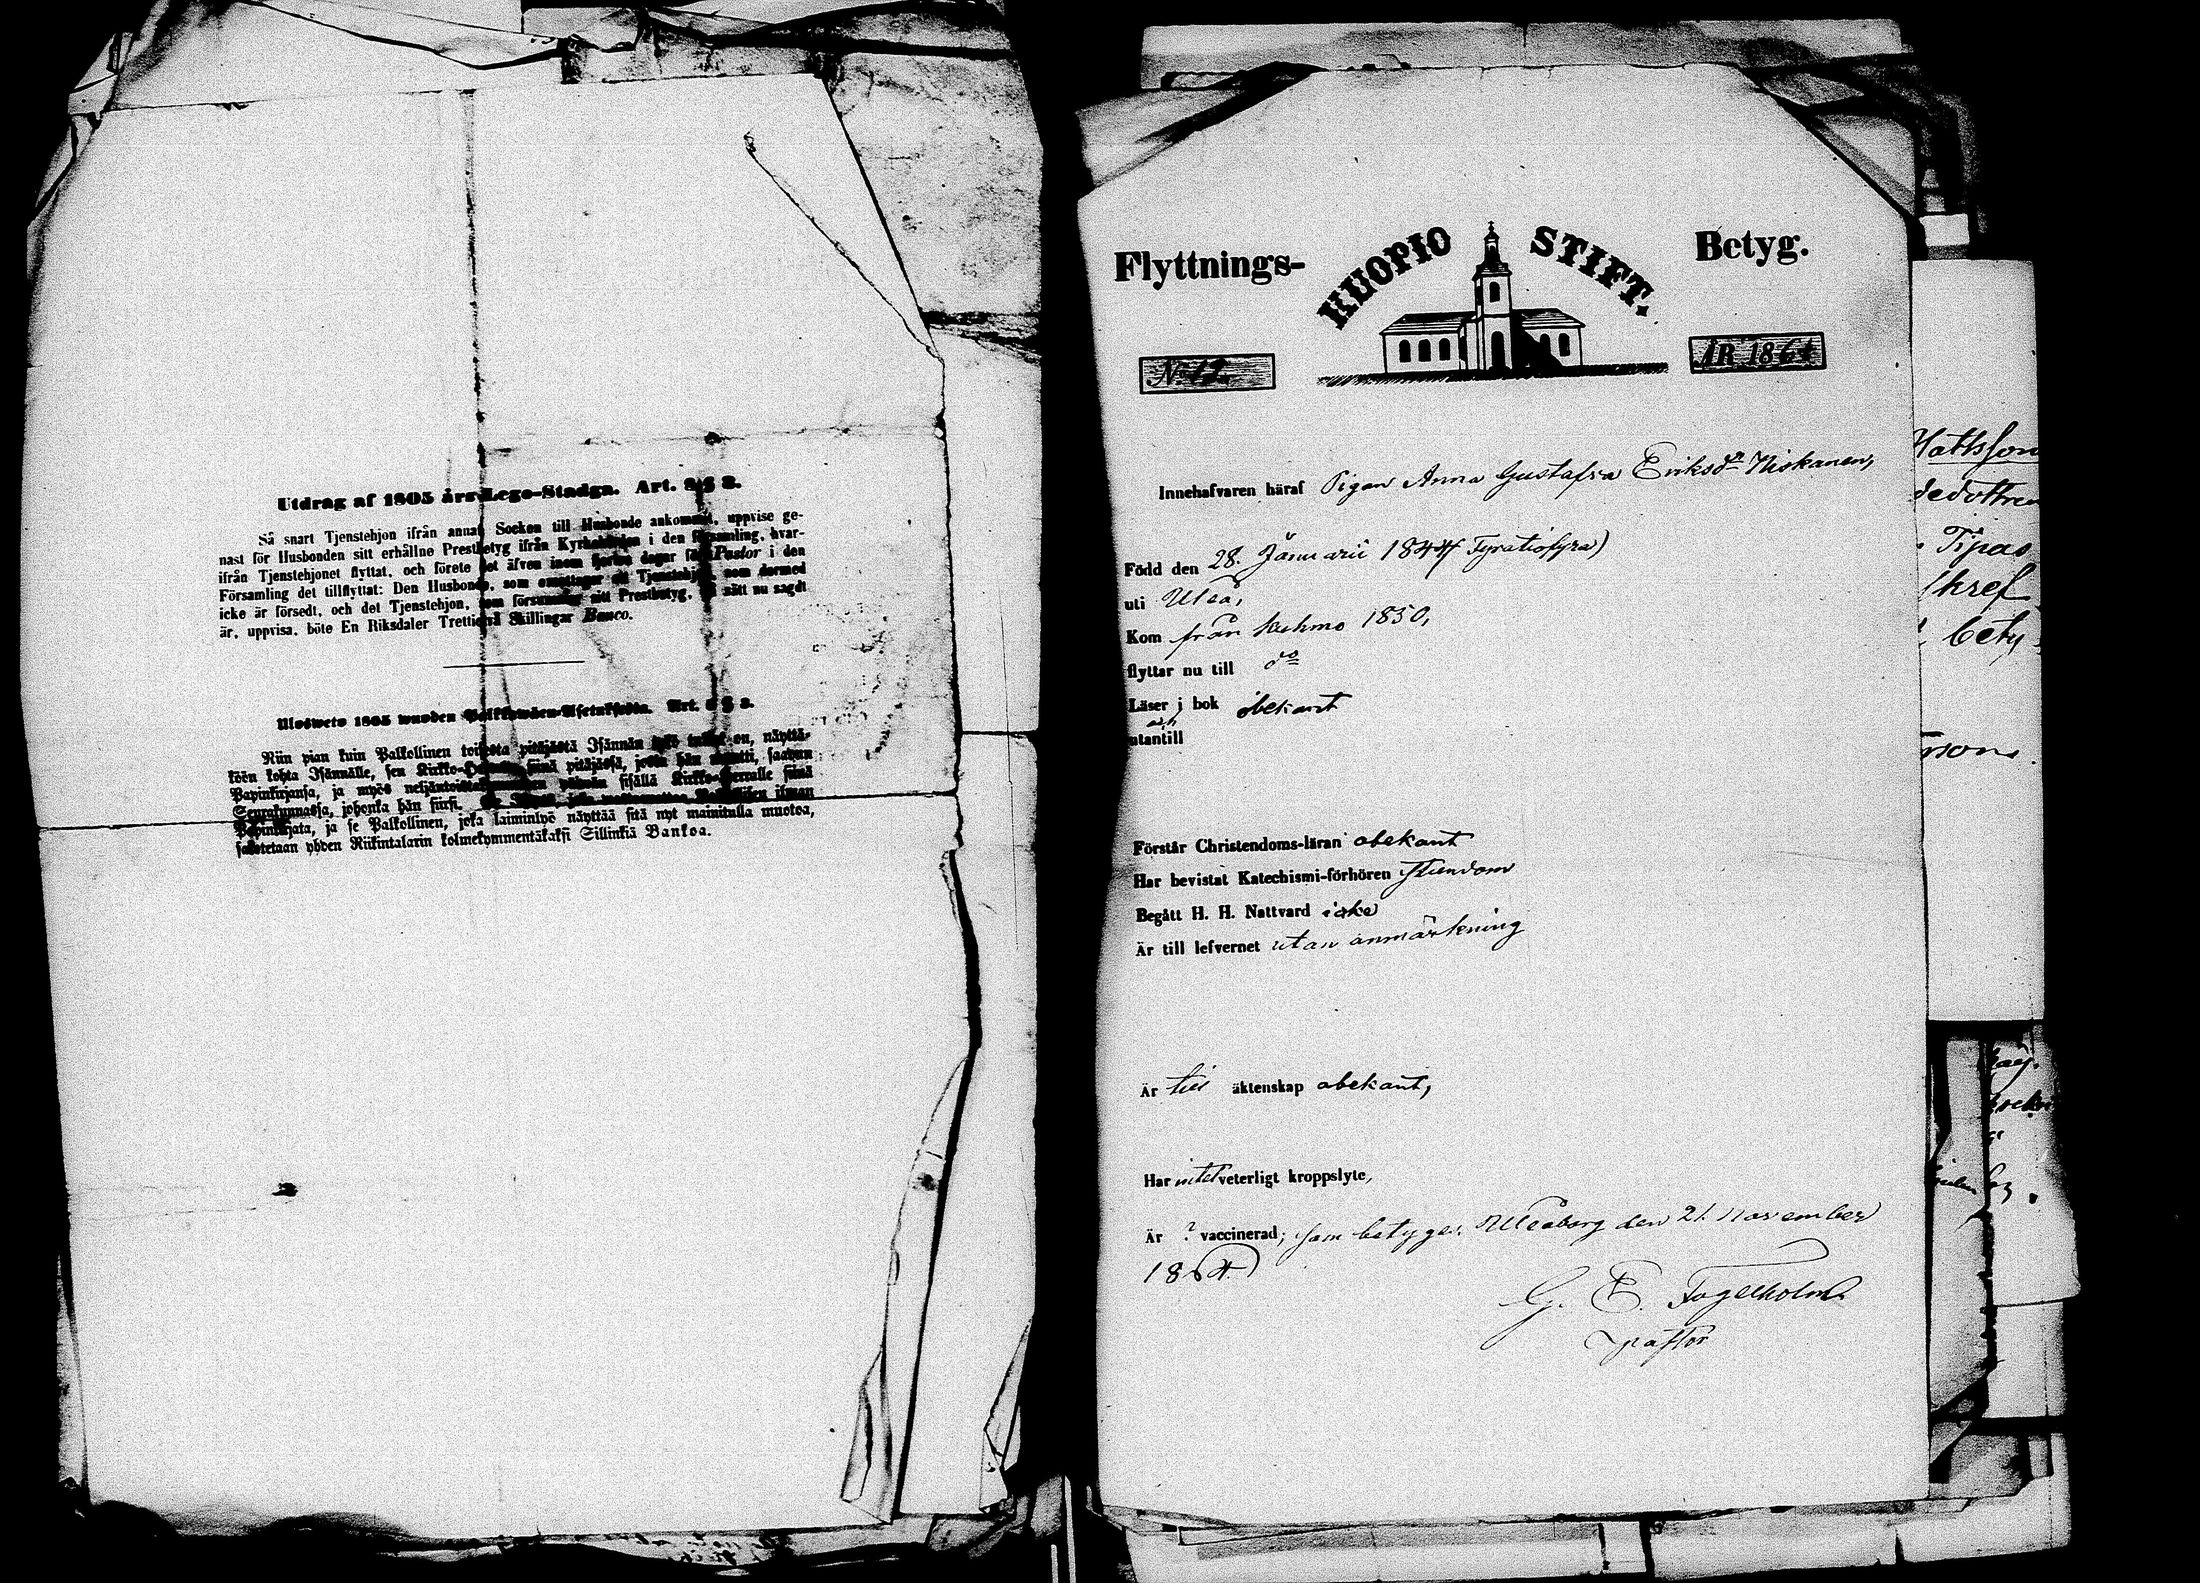 Utdrag af 1805 års Lego-Stadga. Art. 8 § 3.
Så snart Tjenstehjon ifrån annat Socken till Husbonde ankommit, uppvise ge-
nast för Husbonden sitt erhållne Prestbetyg ifrån Kyrkoherden i den församling, hvar-
ifrån Tjenstehjonet flyttat, och förete det äfven inom fjorton dagar för Pastor i den
Församling det tillflyttat: Den Husbonde, som emottager ett Tjenstehjon, som dermed
icke är försedt, och det Tjenstehjon, som försummar sitt Prestbetyg, på sätt nu sagdt
är, uppvisa, böte En Riksdaler Trettiotvå Skillingar Banco.
Ulosweto 1805 wuoden Palkkawäen-Asetuksesta. Art. § 3.
Niin pian kuin Palkollinen toisesta pitäjästä Isännän työ tullut on, näyttä-
köön kohta Isännälle, sen Kirkko- siinä pitäjässä, josta hän muutti, saadun
Papinkirjansa, ja myös neljäntoista päiwän sisällä Kirkko-Herralle siinä
Seurakunnassa, johonka hän siirsi. ilman
Papinkirjata, ja se Palkollinen, joka laiminlyö näyttää sitä nyt mainitulla muotoa,
sakotetaan yhden Riikintalarin kolmekymmentäkaksi Sillinkiä Bankoa.
Flyttnings- KUOPIO STIFT. Betyg.
No 12. ÅR 1864
Innehafvaren häraf Pigan Anna Gustafva Eriksdr Niskanen,
Född den 28. Januarii 1844 (Fyratiofyra)
uti Uleå,
Kom från Kuhmo 1850,
flyttar nu till do
Läser i bok obekant
och
utantill
Förstår Christendoms-läran obekant
Har bevistat Katechismi-förhören stundom
Begått H. H. Nattvard icke
Är till lefvernet utan anmärkning
Är till äktenskap obekant,
Har intet veterligt kroppslyte,
Är ? vaccinerad; som betygar, Uleåborg den 21 November
1864.
G. E. Fogelholm
pastor
Mattsson
Tipas
bety